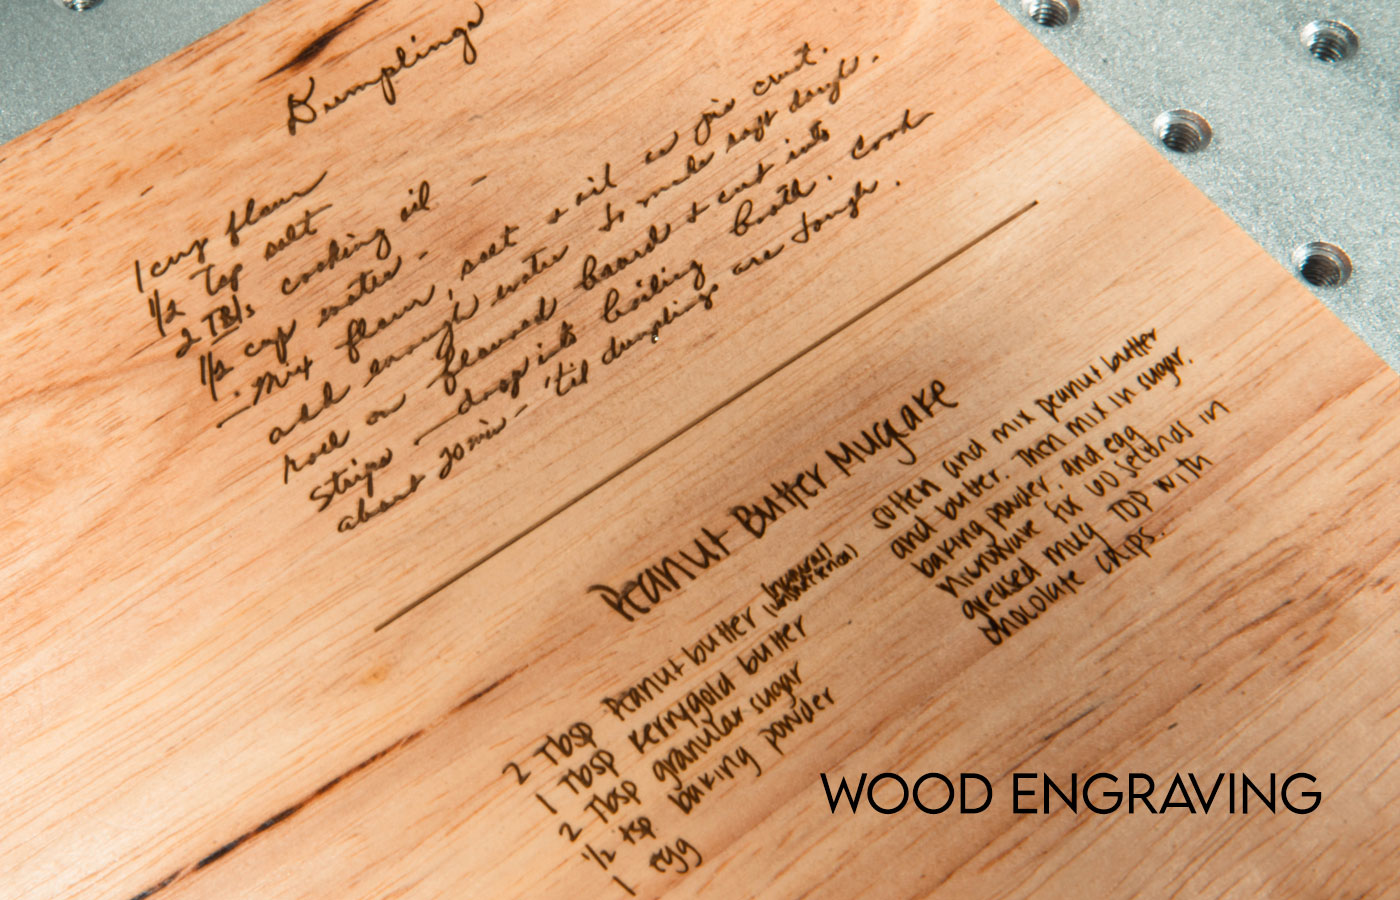 Dumplings
1 cup flour
1/2 Tsp salt
2 TBls cooking oil -
1/2 cup water -
- Mix flour, salt & oil as pie crust.
add enough water to make soft dough.
roll on floured board & cut into
strips - drop into boiling broth. Cook
about 20 min - 'til dumplings are tough.
Peanut Butter Mugcake
2 Tbsp Peanut butter (natural/
1 Tbsp Kerrygold butter
2 Tbsp granular sugar
1/2 tsp baking powder
1 egg
soften and mix peanut butter
and butter. Then mix in sugar,
baking powder, and egg
Microwave for 60 seconds in
greased mug TOP with
chocolate chips.
WOOD ENGRAVING